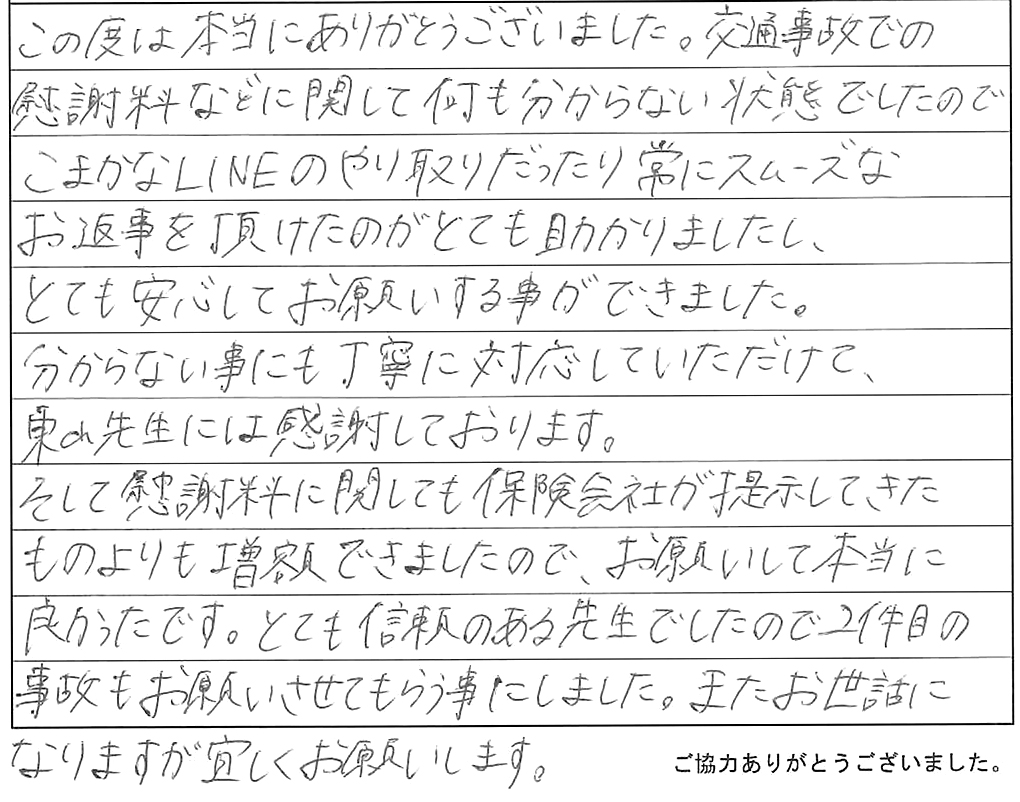 この度は本当にありがとうございました。交通事故での
慰謝料などに関して何も分からない状態でしたので
こまかなLINEのやり取りだったり常にスムーズな
お返事を頂けたのがとても助かりましたし、
とても安心してお願いする事ができました。
分からない事にも丁寧に対応していただけて、
先生には感謝しております。
そして慰謝料に関しても保険会社が提示してきた
ものよりも増額できましたので、お願いして本当に
良かったです。とても信頼のある先生でしたので2件目の
事故もお願いさせてもらう事にしました。またお世話に
なりますが宜しくお願いします。
ご協力ありがとうございました。